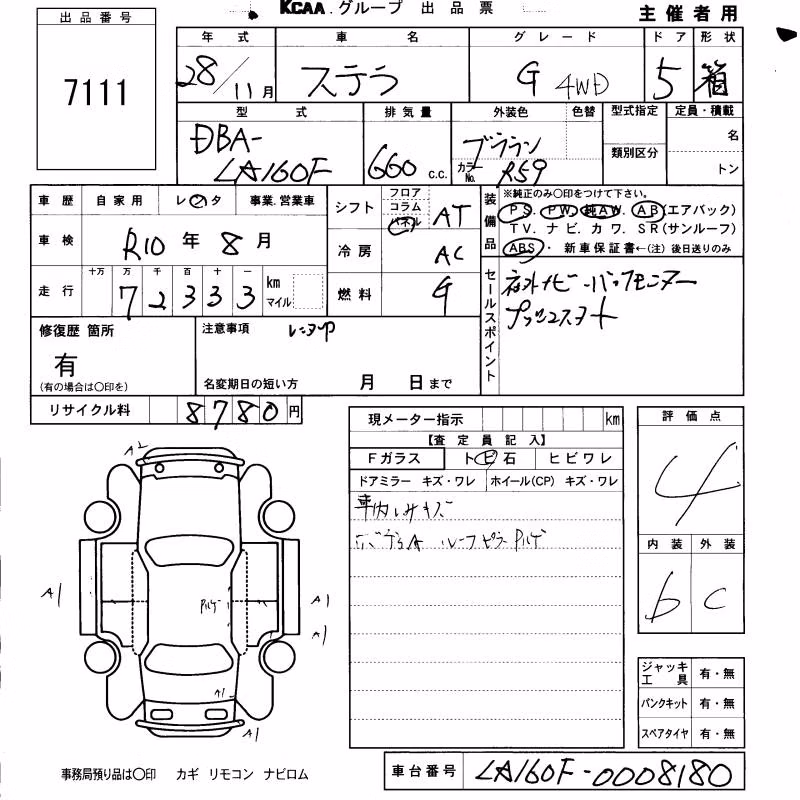 KCAA.グループ 出品票
主催者用
出品番号
7111
年式 車名 グレード ドア 形状
28/11月 ステラ G 4WD 5 箱
型式 排気量 外装色 色替 型式指定 定員・積載
類別区分 名
DBA-LA160F 660 c.c. ブラウン カラーNo. R59 トン
車歴 自家用 レンタ 事業.営業車
車検 R10年8月
走行 十万 万 千 百 十 一 km マイル
72333
シフト フロア コラム パネル AT
冷房 AC
燃料 G
装備品 ※純正のみ○印をつけて下さい。
PS. PW. 純AW. AB(エアバック)
TV. ナビ. カワ. SR(サンルーフ)
ABS・ 新車保証書←(注) 後日送りのみ
セールスポイント
社外ナビ
プッシュスタート
修復歴 箇所
有
(有の場合は○印を)
注意事項
名変期日の短い方 月 日まで
リサイクル料 8780円
現メーター指示 km
【査定員記入】
Fガラス ト ビ 石 ヒビワレ
ドアミラー キズ・ワレ ホイール(CP) キズ・ワレ
車内
評価点
4
内装 外装
b C
A2
A1
A1
A1
A1
A1
ジャッキ工具 有・無
パンクキット 有・無
スペアタイヤ 有・無
事務局預り品は○印 カギ リモコン ナビロム
車台番号 LA160F-0008180